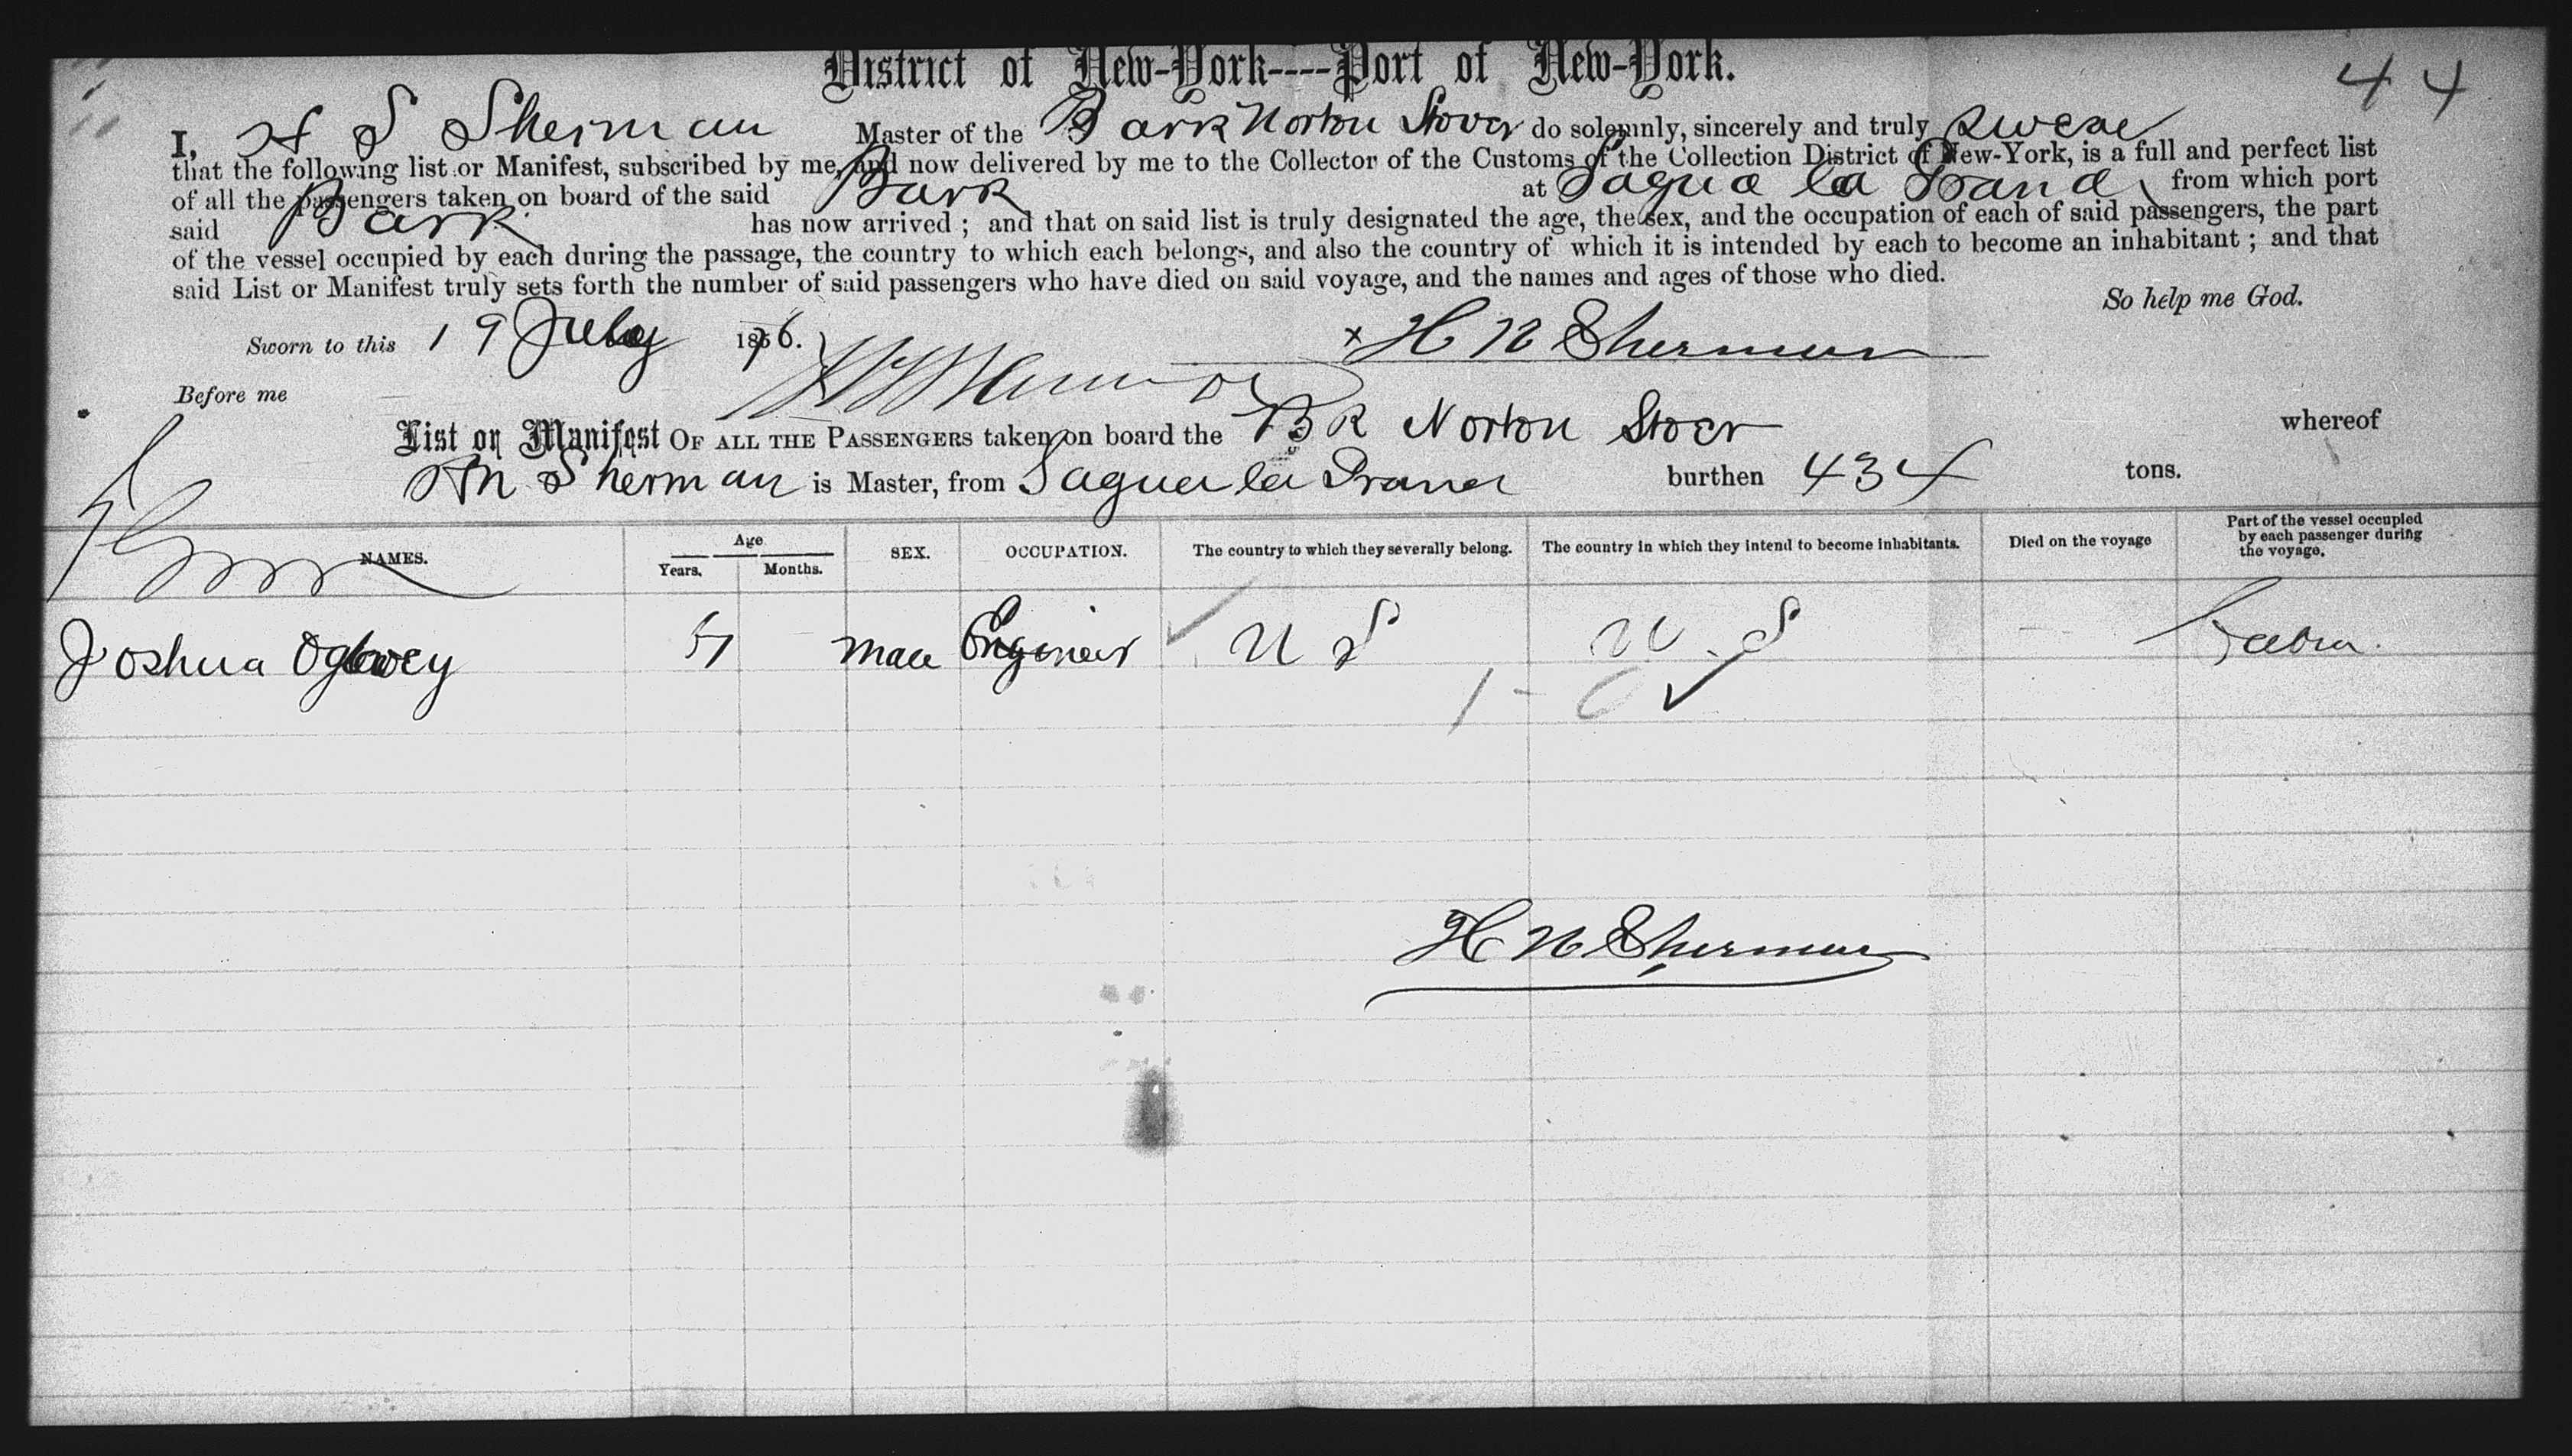 District of New-York----Port of New-York.
44
I, H S Sherman Master of the Bark Norton Stover do solemnly, sincerely and truly swear
that the following list or Manifest, subscribed by me, and now delivered by me to the Collector of the Customs of the Collection District of New-York, is a full and perfect list
of all the passengers taken on board of the said Bark at Sagua la Grand from which port
said Bark has now arrived ; and that on said list is truly designated the age, the sex, and the occupation of each of said passengers, the part
of the vessel occupied by each during the passage, the country to which each belongs, and also the country of which it is intended by each to become an inhabitant ; and that
said List or Manifest truly sets forth the number of said passengers who have died on said voyage, and the names and ages of those who died.
So help me God.
Sworn to this 19 July 1876. x H N Sherman
Before me
List or Manifest OF ALL THE PASSENGERS taken on board the BK Norton Stoer whereof
HN Sherman is Master, from Sagua la Grand burthen 434 tons.
NAMES. Age Years. Months. SEX. OCCUPATION. The country to which they severally belong. The country in which they intend to become inhabitants. Died on the voyage Part of the vessel occupied by each passenger during the voyage.
Joshua 51 Male Engineer U S U S Cabin.
1 -
H N Sherman